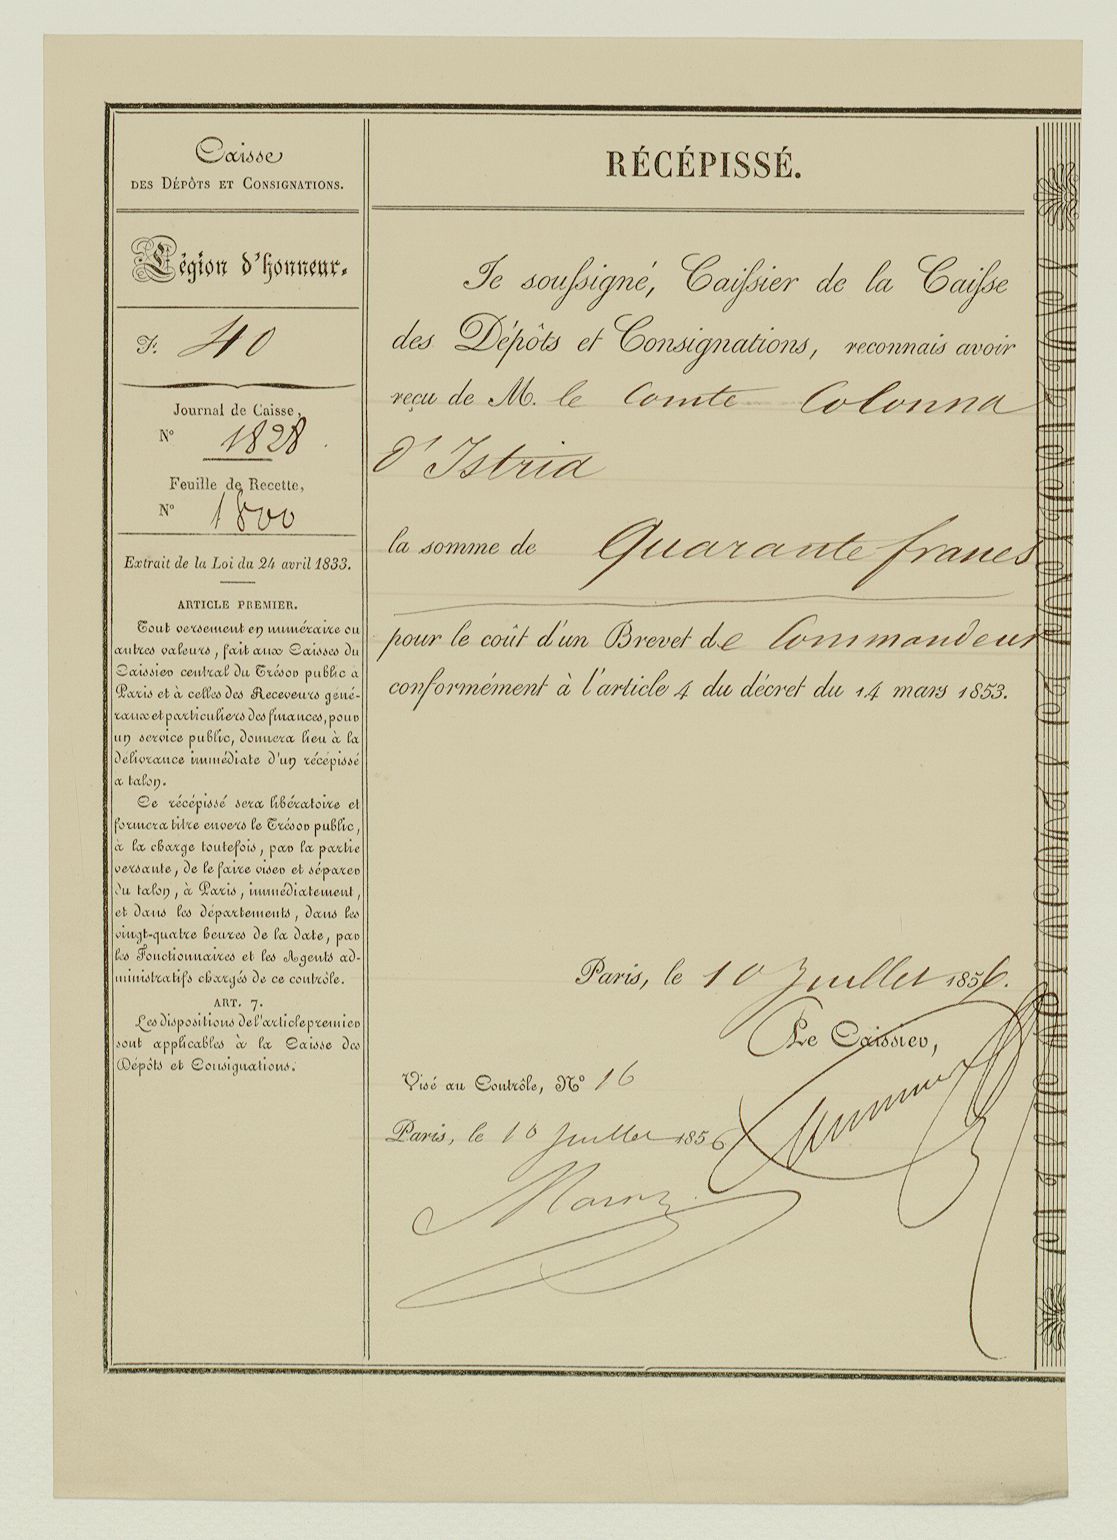 Caisse
DES DÉPÔTS ET CONSIGNATIONS.
Légion d'honneur.
F. 40
Journal de Caisse,
N° 1828
Feuille de Recette,
N° 1800
Extrait de la Loi du 24 avril 1833.
ARTICLE PREMIER.
Tout versement en numéraire ou
autres valeurs, fait aux Caisses du
Caissier central du Trésor public à
Paris et à celles des Receveurs géné-
raux et particuliers des finances, pour
un service public, donnera lieu à la
délivrance immédiate d'un récépissé
a talon.
Ce récépissé sera libératoire et
formera titre envers le Trésor public,
à la charge toutefois, par la partie
versante, de le faire viser et séparer
du talon, à Paris, immédiatement,
et dans les départements, dans les
vingt-quatre heures de la date, par
les Fonctionnaires et les Agents ad-
ministratifs chargés de ce contrôle.
ART. 7.
Les dispositions de l'article premier
sont applicables à la Caisse des
Dépôts et Consignations.
RÉCÉPISSÉ.
Je soussigné, Caissier de la Caisse
des Dépôts et Consignations, reconnais avoir
reçu de M. le Comte Colonna
d'Istria
la somme de Quarante francs
pour le coût d'un Brevet de Commandeur
conformément à l'article 4 du décret du 14 mars 1853.
Paris, le 10 Juillet 1856.
Le Caissier,
Visé au Contrôle, N° 16
Paris, le 10 Juillet 1856